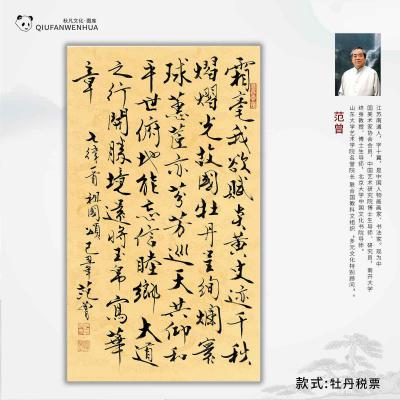 秋凡文化·图库
QIUFANWENHUA
霜毫我欲赋贞黄史迹千秋
熠熠光故国牡丹呈绚烂寰
球蕙芷亦芬芳巡天共仰和
平世俯地能忘信睦乡大道
之行开胜境还将玉帛写华
章
七律一首祖国颂己丑年范曾
范曾
江苏南通人，字十翼，是中国人物画画家，书法家。现为中
国美术家协会会员，中国艺术研究院博士生导师，研究员，南开大学
终身教授，博士生导师，北京大学中国文化书院导师，
山东大学艺术学院名誉院长，联合国教科文组织“多元文化特别顾问”。
款式:牡丹税票